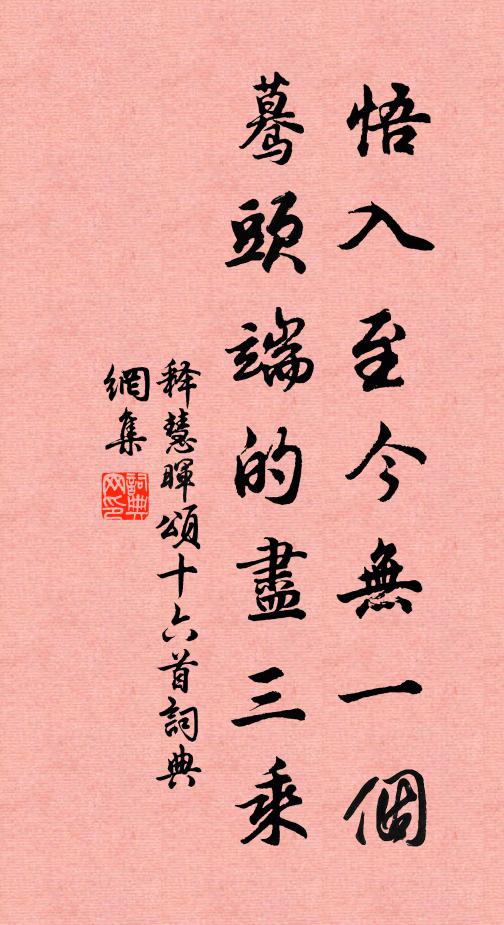 悟入至今無一個
驀頭端的盡三乘
释慧暉頌十六首詞典
網集
詞典
网印